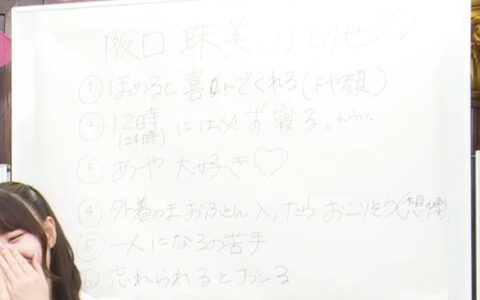 阪口 珠美 トリセツ
① ほめると喜んでくれる(ドヤ顔)
② 12時には必ず寝る。
(24時)
③ あつや大好き♡
④ 外着のままおふとん入ったらおこりそう(想像)
⑤ 一人になるの苦手
⑥ 忘れられるとおこる